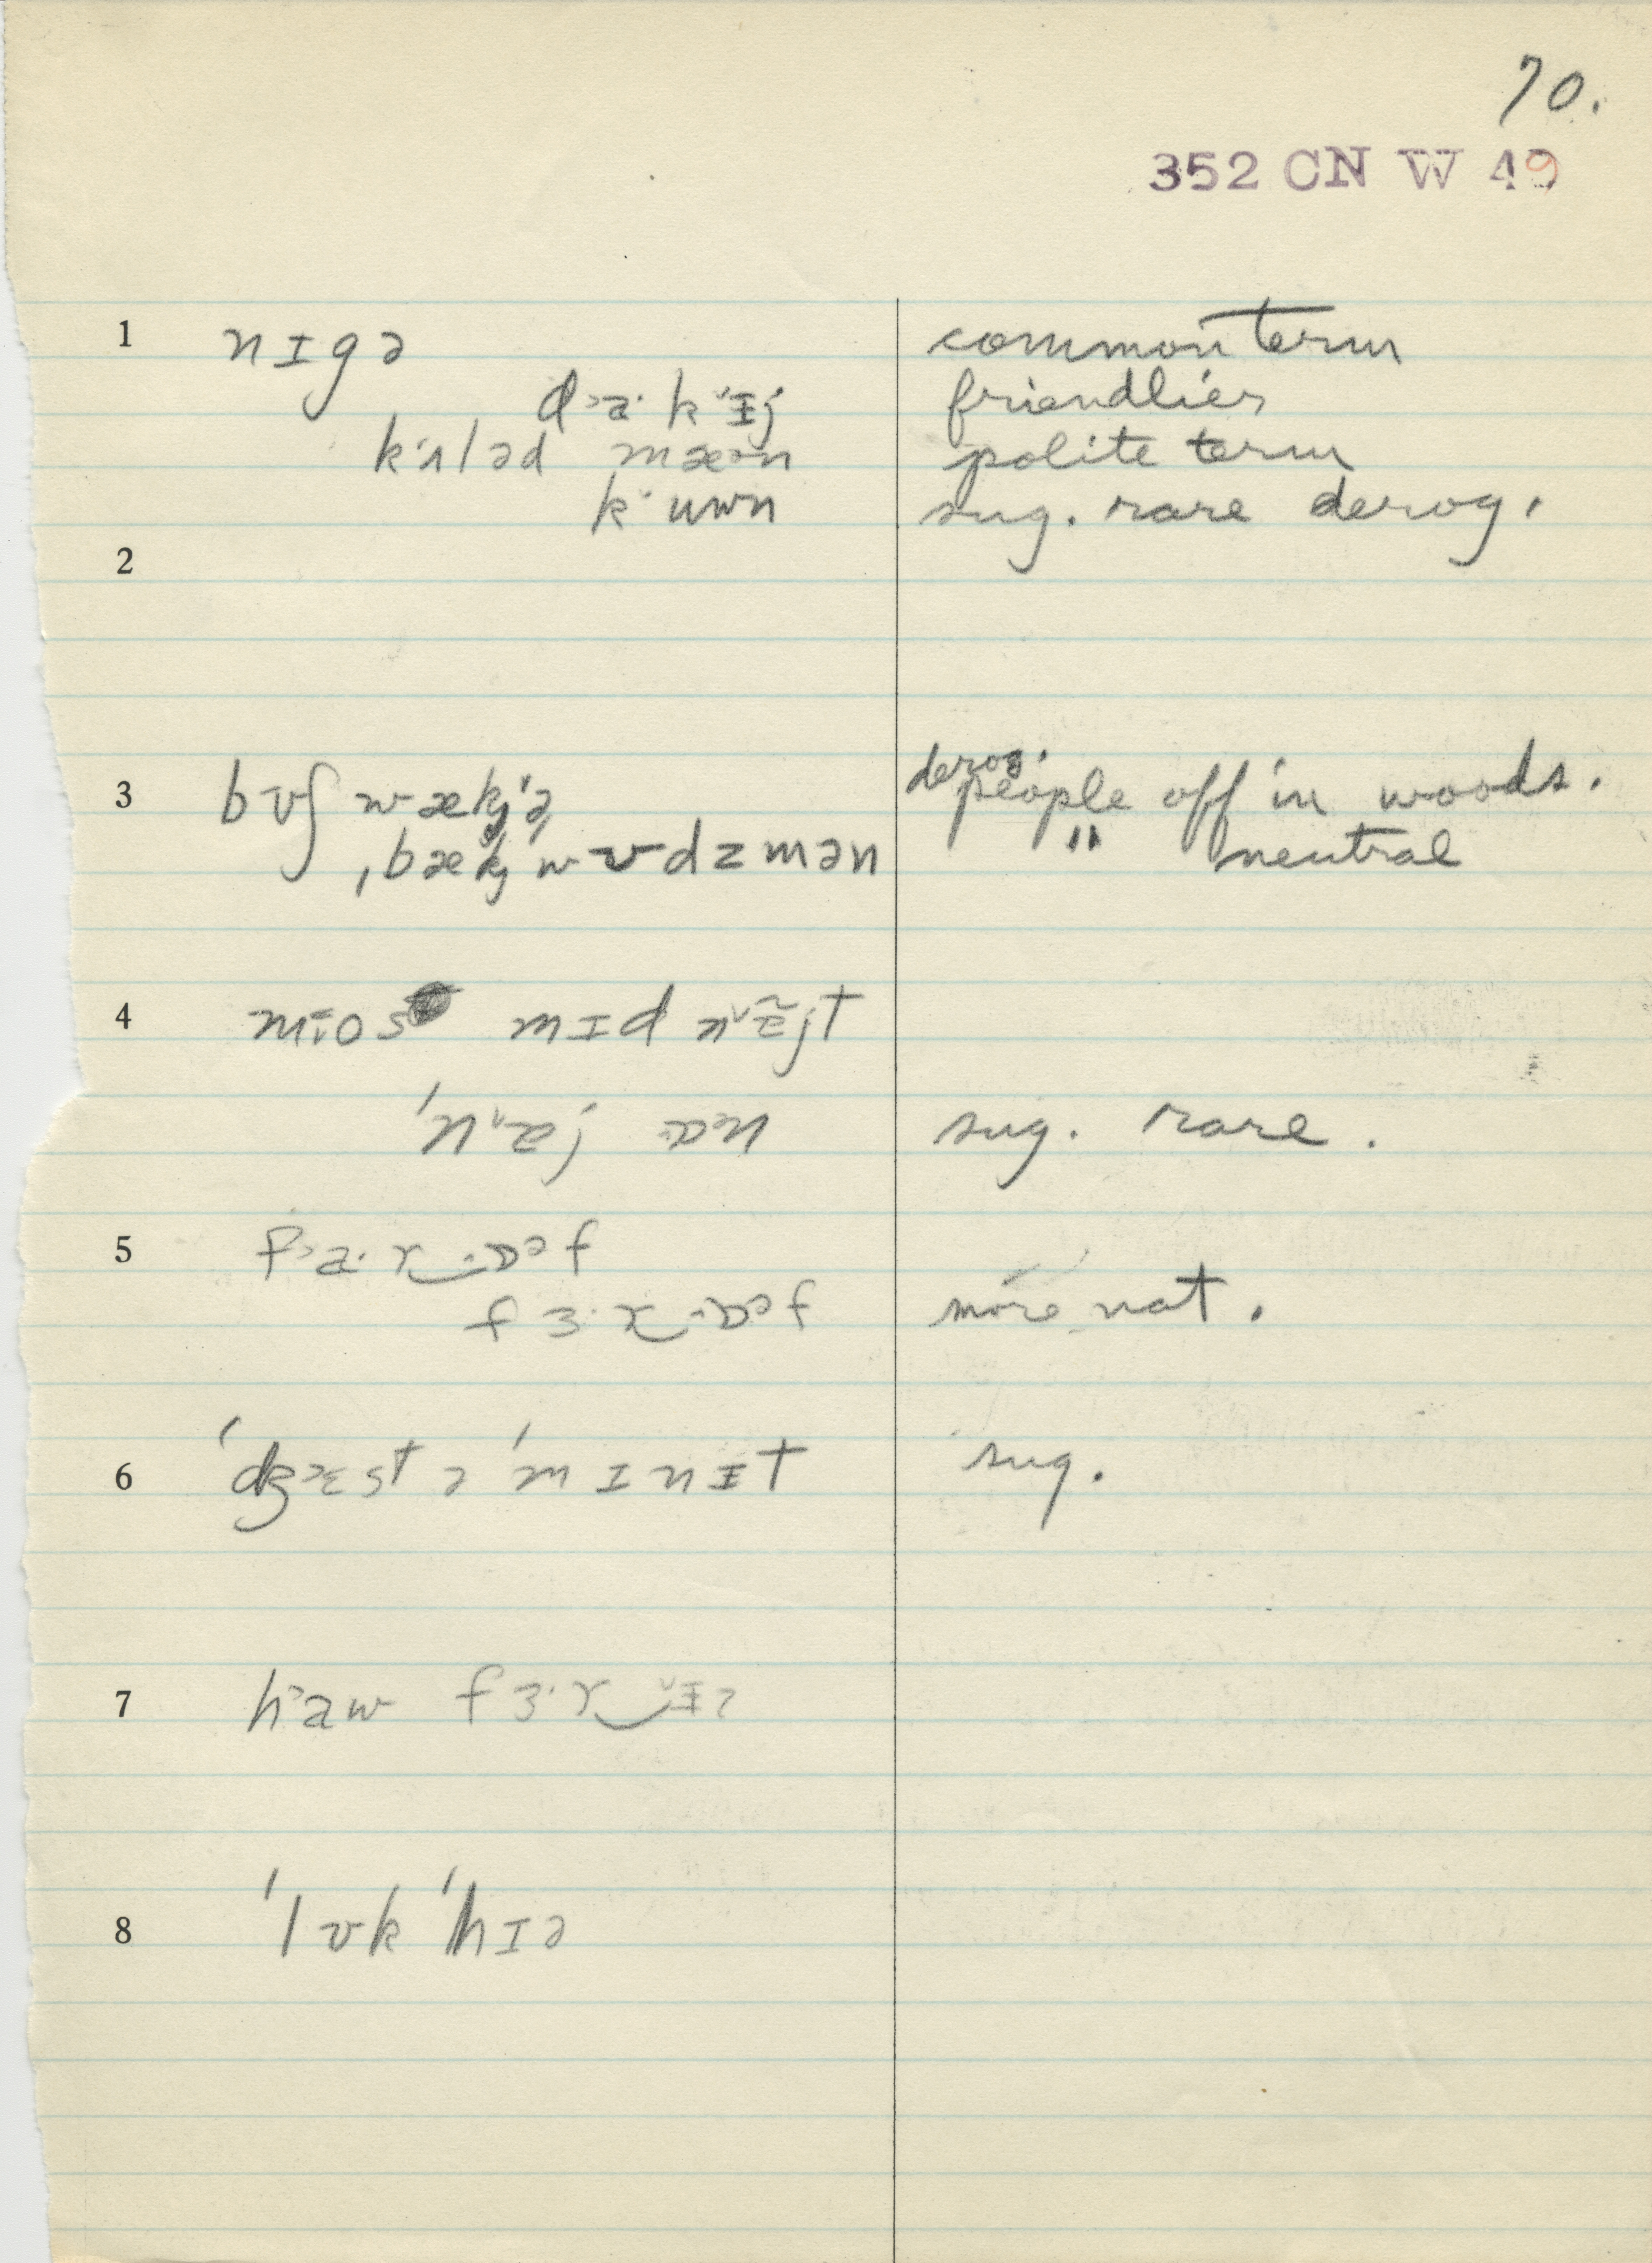 70.
352 CN W 49
1 nɪgə common term
d˃a· kʻɪj friendlier
kʻʌləd mæən polite term
kʻuwn sug. rare derog.
2
3 bʊʃ wækj'ə derog. people off in woods.
ˌbækj wʊdzmən " neutral
4 mɪos mɪd nɐ̃jt
'nɐj ɒən sug. rare.
5 f˃a·r‿ɒəf
fɜ·r‿ɒəf more nat.
6 'dʒɛst ə 'mɪnɪt sug.
7 haw fɜ·r‿ɪz
8 'lʊk 'hɪə